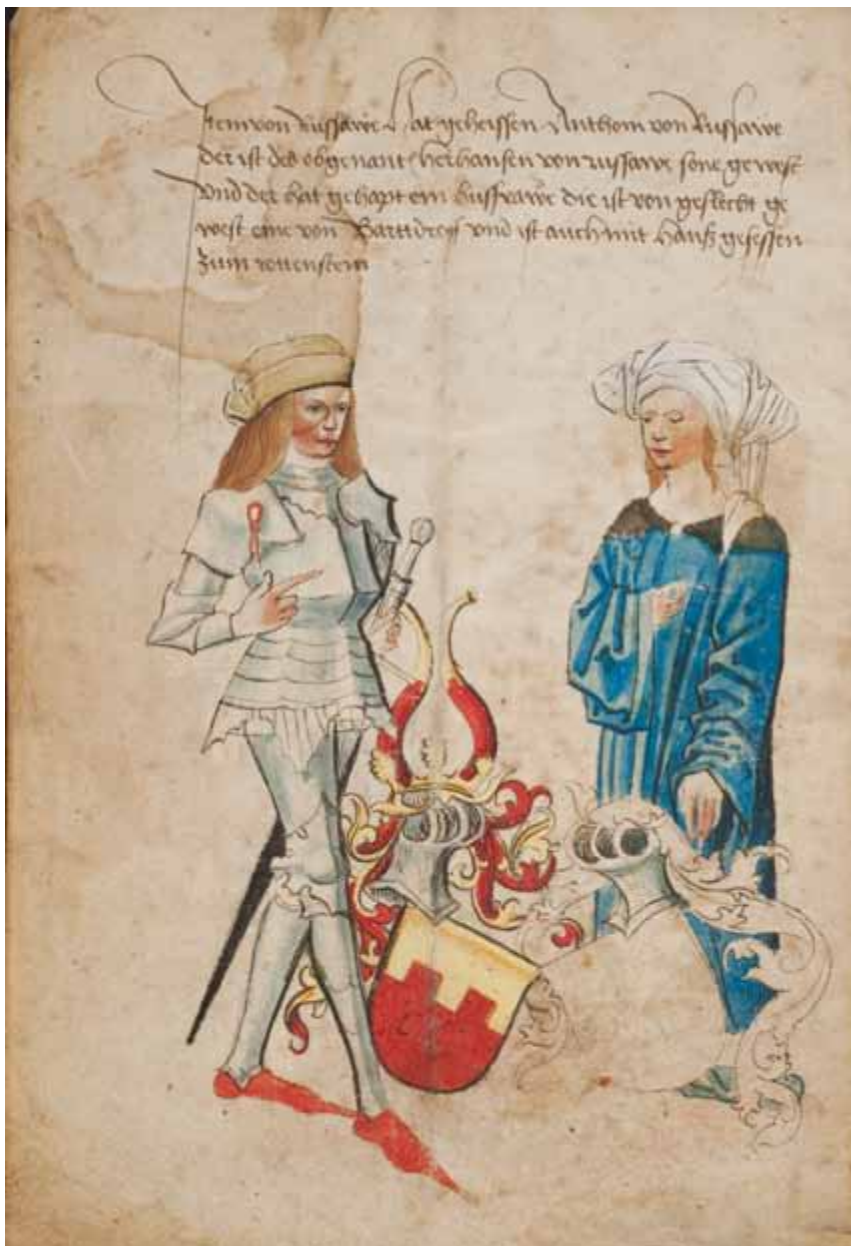 Item von Russawe Hat geheissen Anthom von Russawe
der ist des obgenant herhansen von russawe sone gewest
Vnd der hat gehapt ein hussfrawe die ist von geslecht ge
west eine von vnd ist auch mit hauß gesessen
Zum rottenstein